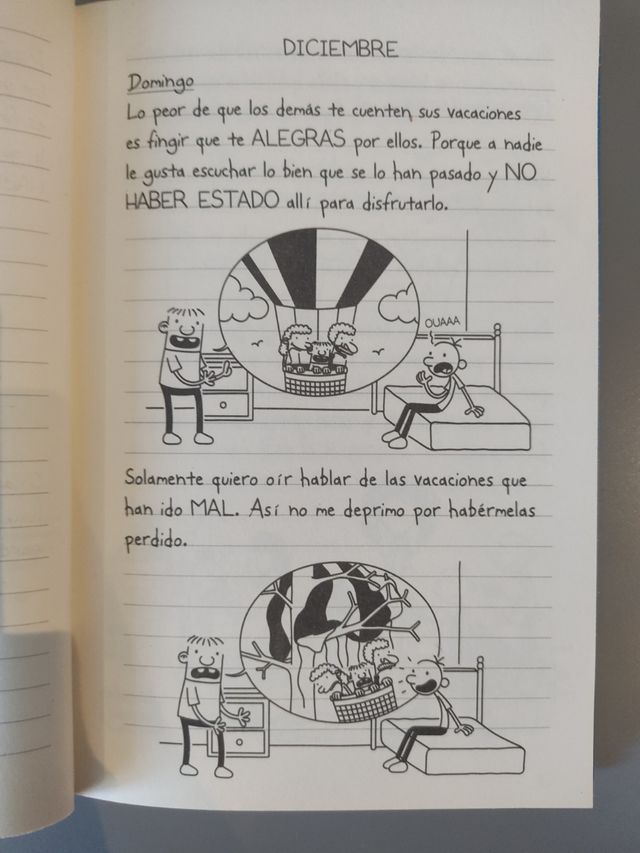 DICIEMBRE
Domingo
Lo peor de que los demás te cuenten sus vacaciones
es fingir que te ALEGRAS por ellos. Porque a nadie
le gusta escuchar lo bien que se lo han pasado y NO
HABER ESTADO allí para disfrutarlo.
OUAAA
Solamente quiero oír hablar de las vacaciones que
han ido MAL. Así no me deprimo por habérmelas
perdido.